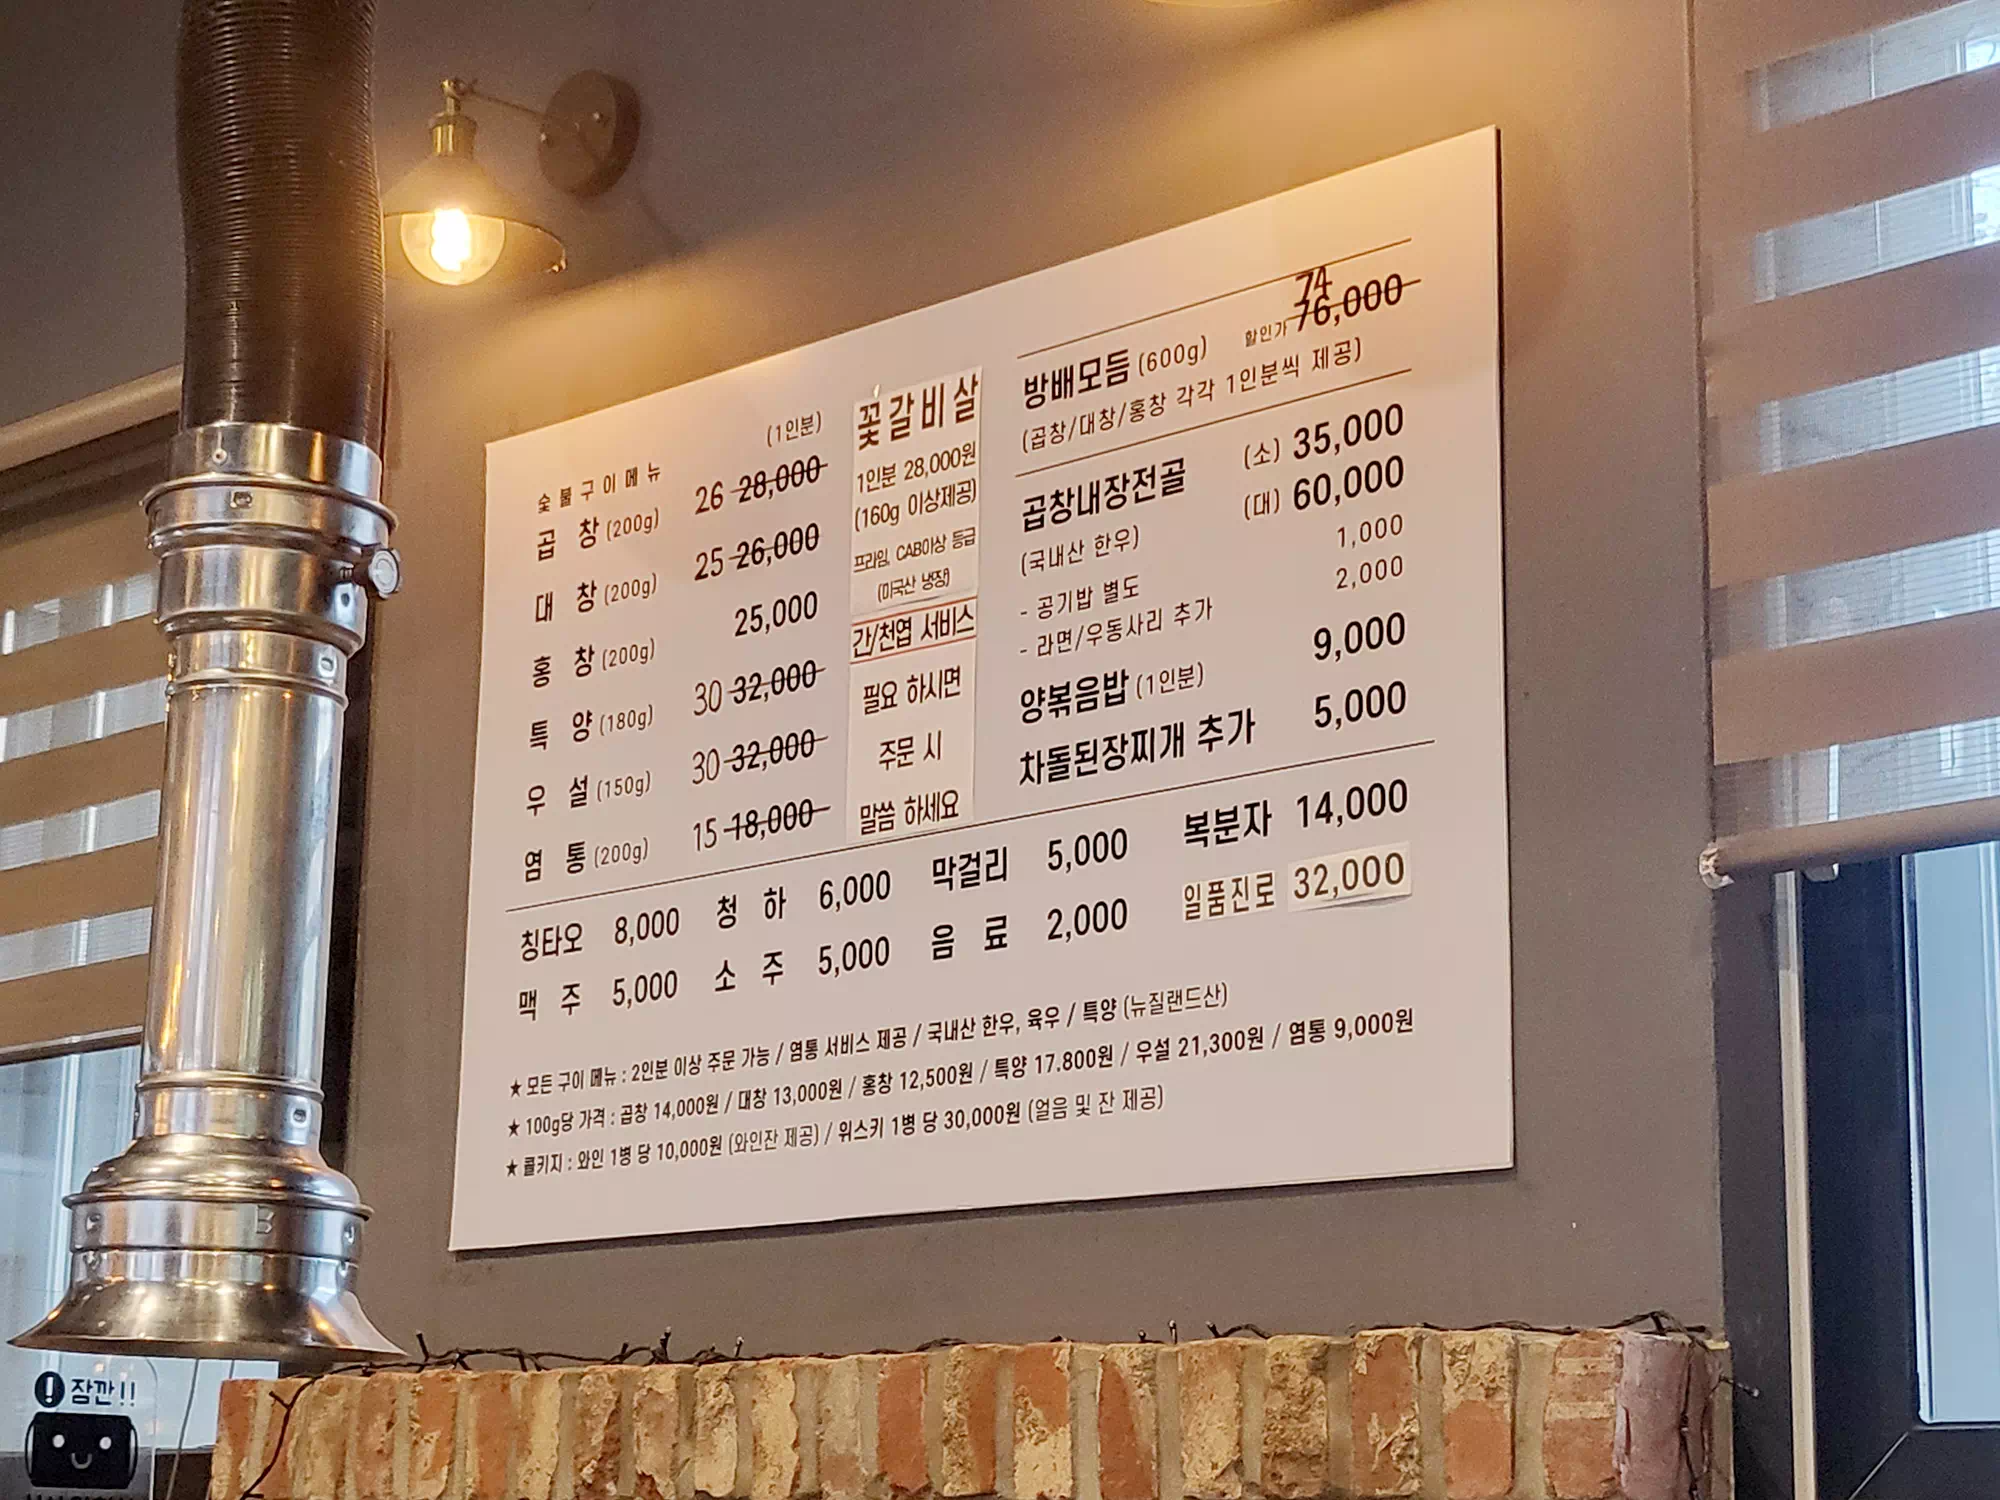 숯불구이메뉴 (1인분)
곱 창 (200g) 26 28,000
대 창 (200g) 25 26,000
홍 창 (200g) 25,000
특 양 (180g) 30 32,000
우 설 (150g) 30 32,000
염 통 (200g) 15 18,000
꽃갈비살
1인분 28,000원
(160g 이상제공)
프라임, CAB이상 등급
(미국산 냉장)
간/천엽 서비스
필요 하시면
주문 시
말씀 하세요
74
방배모듬 (600g) 할인가 76,000
(곱창/대창/홍창 각각 1인분씩 제공)
곱창내장전골 (소) 35,000
(대) 60,000
(국내산 한우)
- 공기밥 별도 1,000
- 라면/우동사리 추가 2,000
양볶음밥 (1인분) 9,000
차돌된장찌개 추가 5,000
칭타오 8,000 청 하 6,000 막걸리 5,000 복분자 14,000
맥 주 5,000 소 주 5,000 음 료 2,000 일품진로 32,000
★ 모든 구이 메뉴 : 2인분 이상 주문 가능 / 염통 서비스 제공 / 국내산 한우, 육우 / 특양 (뉴질랜드산)
★ 100g당 가격 : 곱창 14,000원 / 대창 13,000원 / 홍창 12,500원 / 특양 17.800원 / 우설 21,300원 / 염통 9,000원
★ 콜키지 : 와인 1병 당 10,000원 (와인잔 제공) / 위스키 1병 당 30,000원 (얼음 및 잔 제공)
잠깐!!